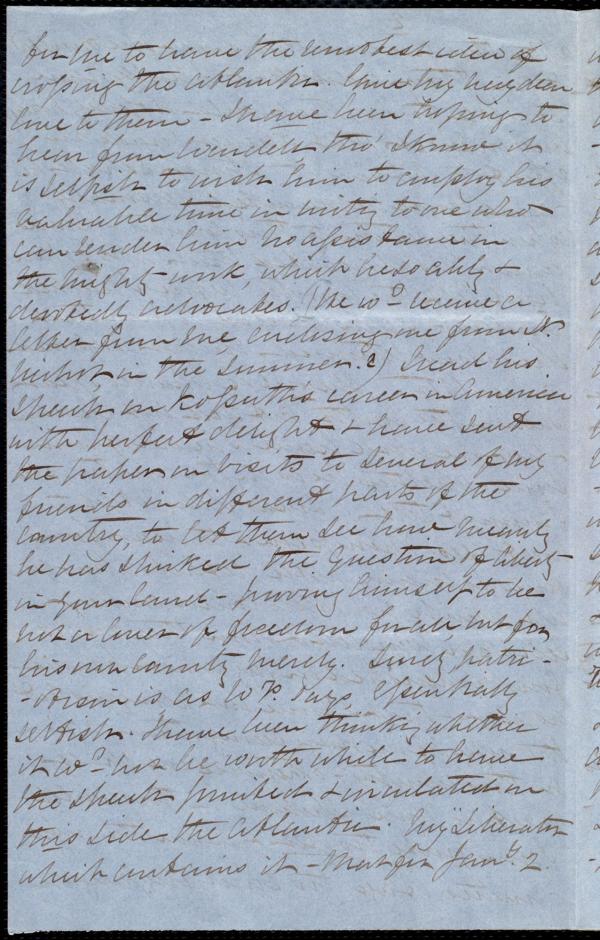 for me to have the remotest idea of
crossing the Atlantic. Give my very dear
love to them - I have been hoping to
hear from Wendell, tho' I know it
is selfish to wish him to employ his
valuable time in writg to one who
can render him no assistance in
the mighty work, which he so ably &
devotedly advocates. (He wd receive a
letter from me, enclosing one from N.
in the Summer?) I read his
Speech on Kossuth's career in America
with perfect delight & have sent
the paper on visits to several of my
friends in different parts of the
country, to let them see how meanly
he has shirked the question of liberty
in your land - proving himself to be
not a lover of freedom for all, but for
his own country merely. Surely patri-
-otism is as says, essentially
selfish. I have been thinkg whether
it wd not be worth while to have
the speech printed & circulated on
this side the Atlantic. My "Liberator
which contains it - that for Jany. 2